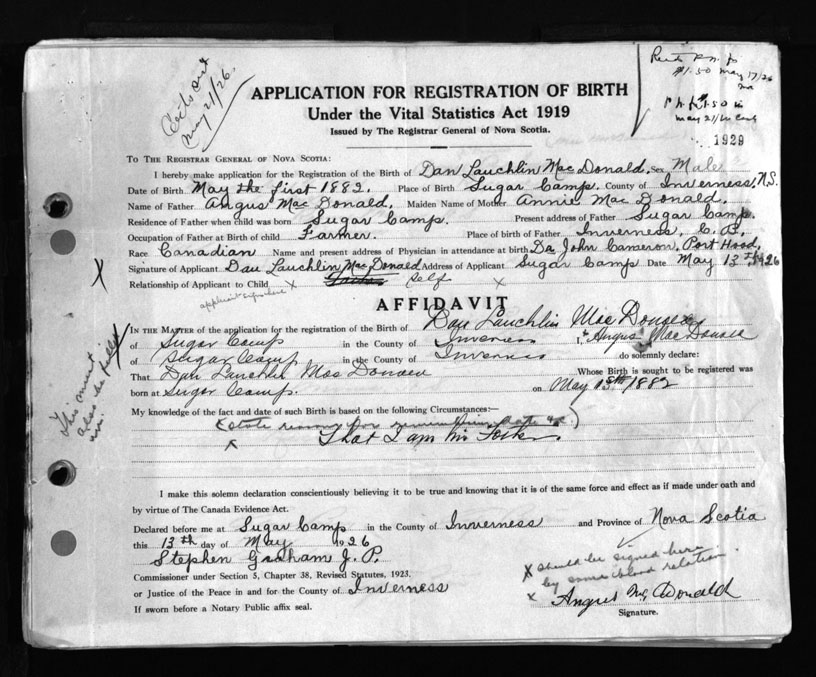 Certs out
May 21/26.
Recd P.N. for
$1.50 May 17/26
$1.50 in
May 21/26
1929
APPLICATION FOR REGISTRATION OF BIRTH
Under the Vital Statistics Act 1919
Issued by The Registrar General of Nova Scotia.
TO THE REGISTRAR GENERAL OF NOVA SCOTIA:
I hereby make application for the Registration of the Birth of Dan Lauchlin MacDonald, Sex Male
Date of Birth May the first 1882. Place of Birth Sugar Camp. County of Inverness, N.S.
Name of Father Angus MacDonald. Maiden Name of Mother Annie MacDonald.
Residence of Father when child was born Sugar Camp. Present address of Father Sugar Camp.
Occupation of Father at Birth of child Farmer. Place of birth of Father Inverness, C.B.
Race Canadian Name and present address of Physician in attendance at birth Dr. John Cameron, Port Hood.
Signature of Applicant Dan Lauchlin MacDonald Address of Applicant Sugar Camp Date May 13th 1926
X Relationship of Applicant to Child X Father Self X
applicant sign here
AFFIDAVIT
IN THE MATTER of the application for the registration of the Birth of Dan Lauchlin MacDonald
of Sugar Camp in the County of Inverness I, Angus MacDonald
of Sugar Camp in the County of Inverness do solemnly declare:
That Dan Lauchlin MacDonald Whose Birth is sought to be registered was
born at Sugar Camp. on May 13th 1882
This must
also be filled
in.
My knowledge of the fact and date of such Birth is based on the following Circumstances:—
(State reason for remembering date &c)
X That I am his Father
I make this solemn declaration conscientiously believing it to be true and knowing that it is of the same force and effect as if made under oath and
by virtue of The Canada Evidence Act.
Declared before me at Sugar Camp in the County of Inverness and Province of Nova Scotia
this 13th day of May 1926
Stephen Graham J.P.
Commissioner under Section 5, Chapter 38, Revised Statutes, 1923.
or Justice of the Peace in and for the County of Inverness
If sworn before a Notary Public affix seal.
X should be signed here
by some blood relation.
X Angus McDonald
Signature.